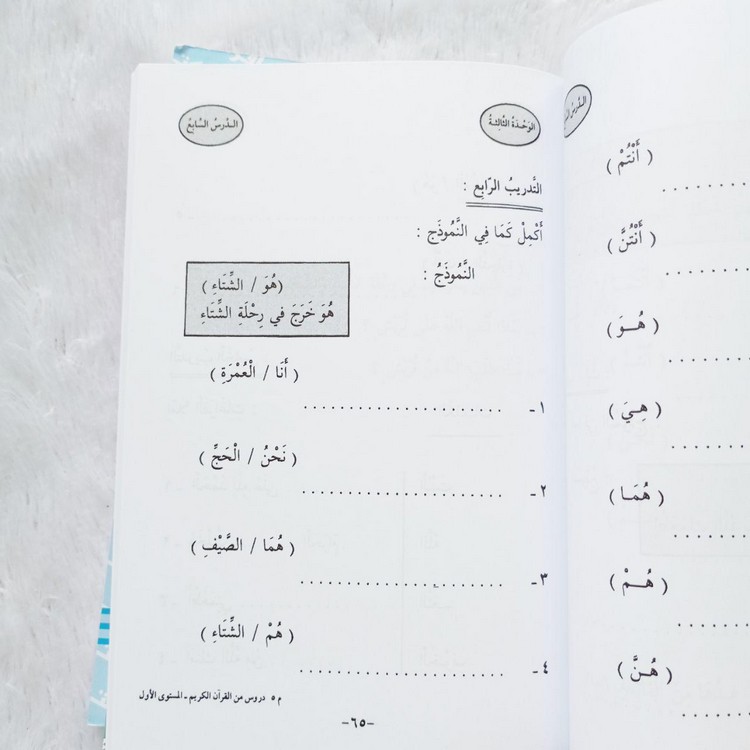 الوَحْدَةُ الثَّالِثَةُ
الـدَّرسُ السَّابِعُ
التَّدريبُ الرَّابِع :
أَكْمِلْ كَمَا فِي النَّمُوذَج :
النَّمُوذَجُ :
(هُوَ / الشِّتَاءِ)
هُوَ خَرَجَ في رِحْلَةِ الشِّتَاءِ
( أَنَا / الْعُمْرَةِ )
١ - ......................
( نَحْنُ / الْحَجِّ )
٢ - ......................
( هُمَا / الصَّيْفِ )
٣ - ......................
( هُمْ / الشِّتَاءِ )
٤ - ......................
م ٥ دروس من القرآن الكريم - المستوى الأول
-٦٥-
الـدَّرسُ
( أَنْتُمْ )
..........
( أَنْتُنَّ )
..........
( هُــوَ )
..........
( هِـيَ )
..........
( هُمَـا )
..........
( هُــمْ )
..........
( هُـنَّ )
..........